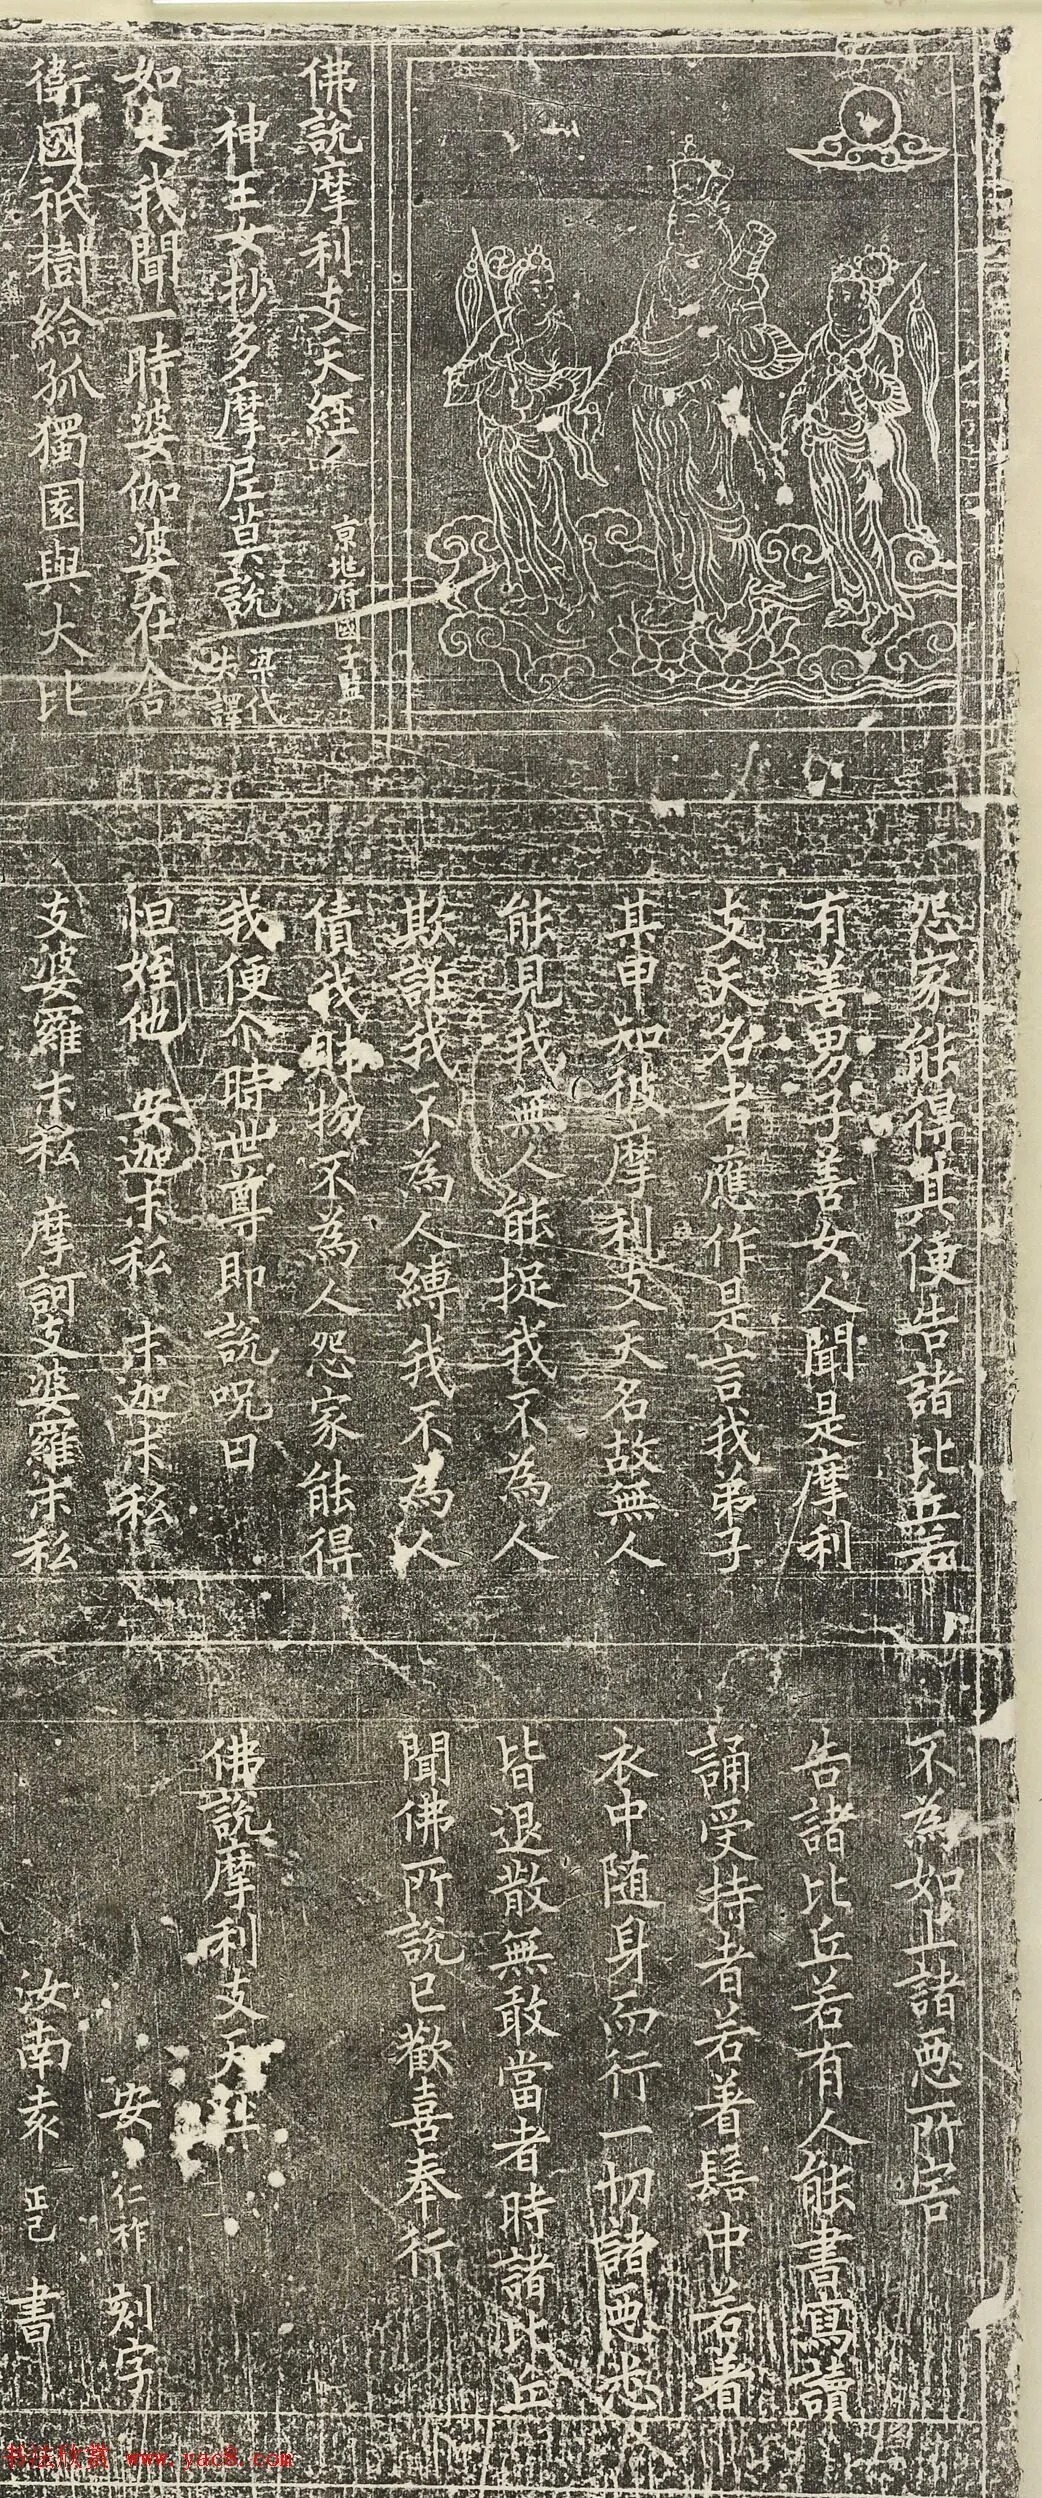 佛說摩利支天經 京兆府國子監
神王女抄多摩尼莫說 梁代失譯
如是我聞一時婆伽婆在舍
衛國祇樹給孤獨園與大比
怨家能得其便告諸比丘若
有善男子善女人聞是摩利
支天名者應作是言我弟子
某甲知彼摩利支天名故無人
能見我無人能捉我不為人
欺誑我不為人縛我不為人
債我財物不為人怨家能得
我便尒時世尊即說呪曰
怛姪他 安迦末私 末迦末私
支婆羅末私 摩訶支婆羅末私
不為如上諸惡所害
告諸比丘若有人能書寫讀
誦受持者若著髻中若著
衣中隨身而行一切諸惡悉
皆退散無敢當者時諸比丘
聞佛所說已歡喜奉行
佛說摩利支天經
安仁祚 刻字
汝南袁正己 書
书法欣赏 www.yac8.com